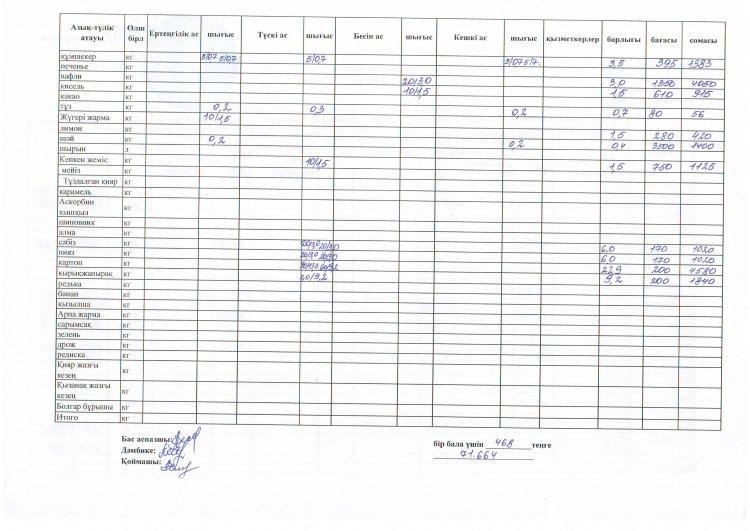 Азық-түлік атауы Өлш бірл Ертеңгілік ас шығыс Түскі ас шығыс Бесін ас шығыс Кешкі ас шығыс қызметкерлер барлығы бағасы сомасы
құмшекер кг 5/07 5/07 5/07 5/07 5/7. 3,5 395 1383
печенье кг
вафли кг 20/3,0 3,0 1350 4050
кисель кг 10/1,5 1,5 610 915
какао кг
тұз кг 0,2 0,3 0,2 0,7 80 56
Жүгері жарма кг 10/1,5
лимон кг 1,5 280 420
шәй кг 0,2 0,2 0,4 3500 1400
шырын л
Кепкен жеміс кг 10/1,5 1,5 750 1125
мейіз кг
Тұздалған қияр кг
карамель кг
Аскорбин қышқыл кг
шиповник кг
алма кг
сәбіз кг 20/3,0 20/3,0 6,0 170 1020
пияз кг 20/3,0 20/3,0 6,0 170 1020
картоп кг 22,9 200 4580
қырыққабырақ кг 60/9,2 9,2 200 1840
редька кг
банан кг
қызылша кг
Арпа жарма кг
сарымсақ кг
зелень кг
дрож кг
редиска кг
Қияр жазғы кезең кг
Қызанақ жазғы кезең кг
Болгар бұрышы кг
Итого кг
Бас аспазшы:
Дәмбике:
Қоймашы:
бір бала үшін 468 теңге
71.664